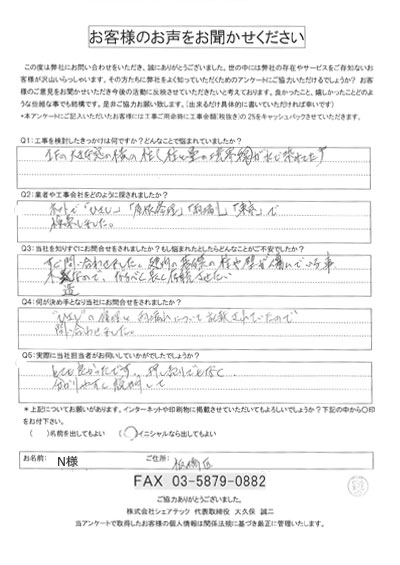 お客様のお声をお聞かせください
この度は弊社にお問い合わせをいただき、誠にありがとうございました。世の中には弊社の存在やサービスをご存知ないお
客様が沢山いらっしゃいます。その方たちに弊社をよく知っていただくためのアンケートにご協力いただけるでしょうか？お客
様のご意見をお聞かせいただき今後の活動に反映させていただきたいと考えております。良かったこと、嬉しかったことどのよ
うな些細な事でも結構です。是非ご協力お願い致します。（出来るだけ具体的に書いていただければ幸いです）
*本アンケートにご記入いただいたお客様には工事ご用命時に工事金額(税抜き)の2%をキャッシュバックさせていただきます。
Q1:工事を検討したきっかけは何ですか？どんなことで悩まれていましたか？
Q2:業者や工事会社をどのように探されましたか？
ネットで「ひさし」「屋根修理」「雨漏り」「東京」で
検索しました。
Q3:当社を知りすぐにお問合せをされましたか？もし悩まれたとしたらどんなことがご不安でしたか？
すぐ問い合わせました。
木造なので、なるべく長く
Q4:何が決め手となり当社にお問合せをされましたか？
"ひさし"の修理と雨漏りについて記載されていたので
問い合わせました。
Q5:実際に当社担当者がお伺いしていかがでしたでしょうか？
とても良かったです。押し売りでもなく
分かりやすく説明して
*上記についてお願いがあります。インターネットや印刷物に掲載させていただいてもよろしいでしょうか？下記の中から〇印
をお付下さい。
( )名前を出してもよい (〇)イニシャルなら出してもよい
お名前: N様 ご住所: 板橋区
FAX 03-5879-0882
ご協力ありがとうございました。
株式会社シェアテック 代表取締役 大久保 誠二
当アンケートで取得したお客様の個人情報は関係法規に基づき厳正に管理いたします。